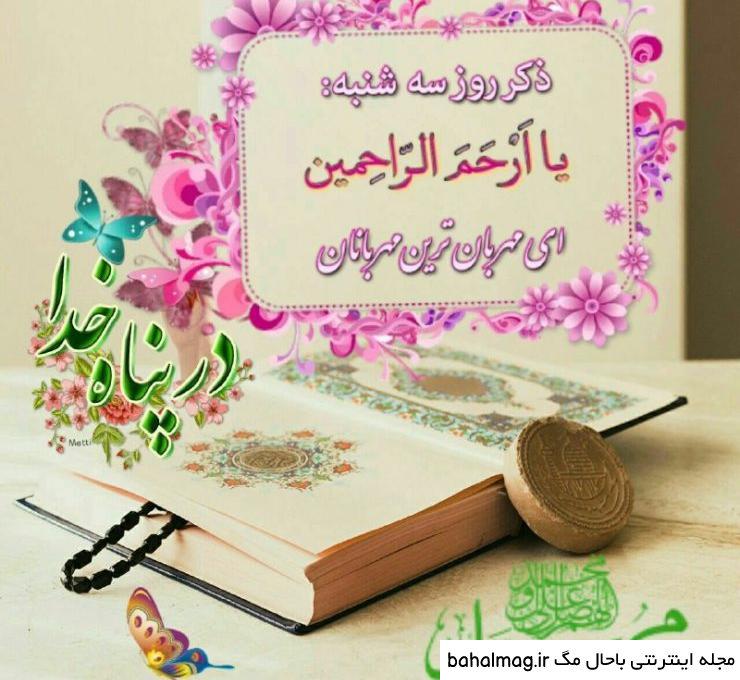 ذکر روز سه شنبه:
یا اَرْحَمَ الرّاحِمین
ای مهربان ترین مهربانان
در پناه خدا
Metti
مجله اینترنتی باحال مگ bahalmag.ir